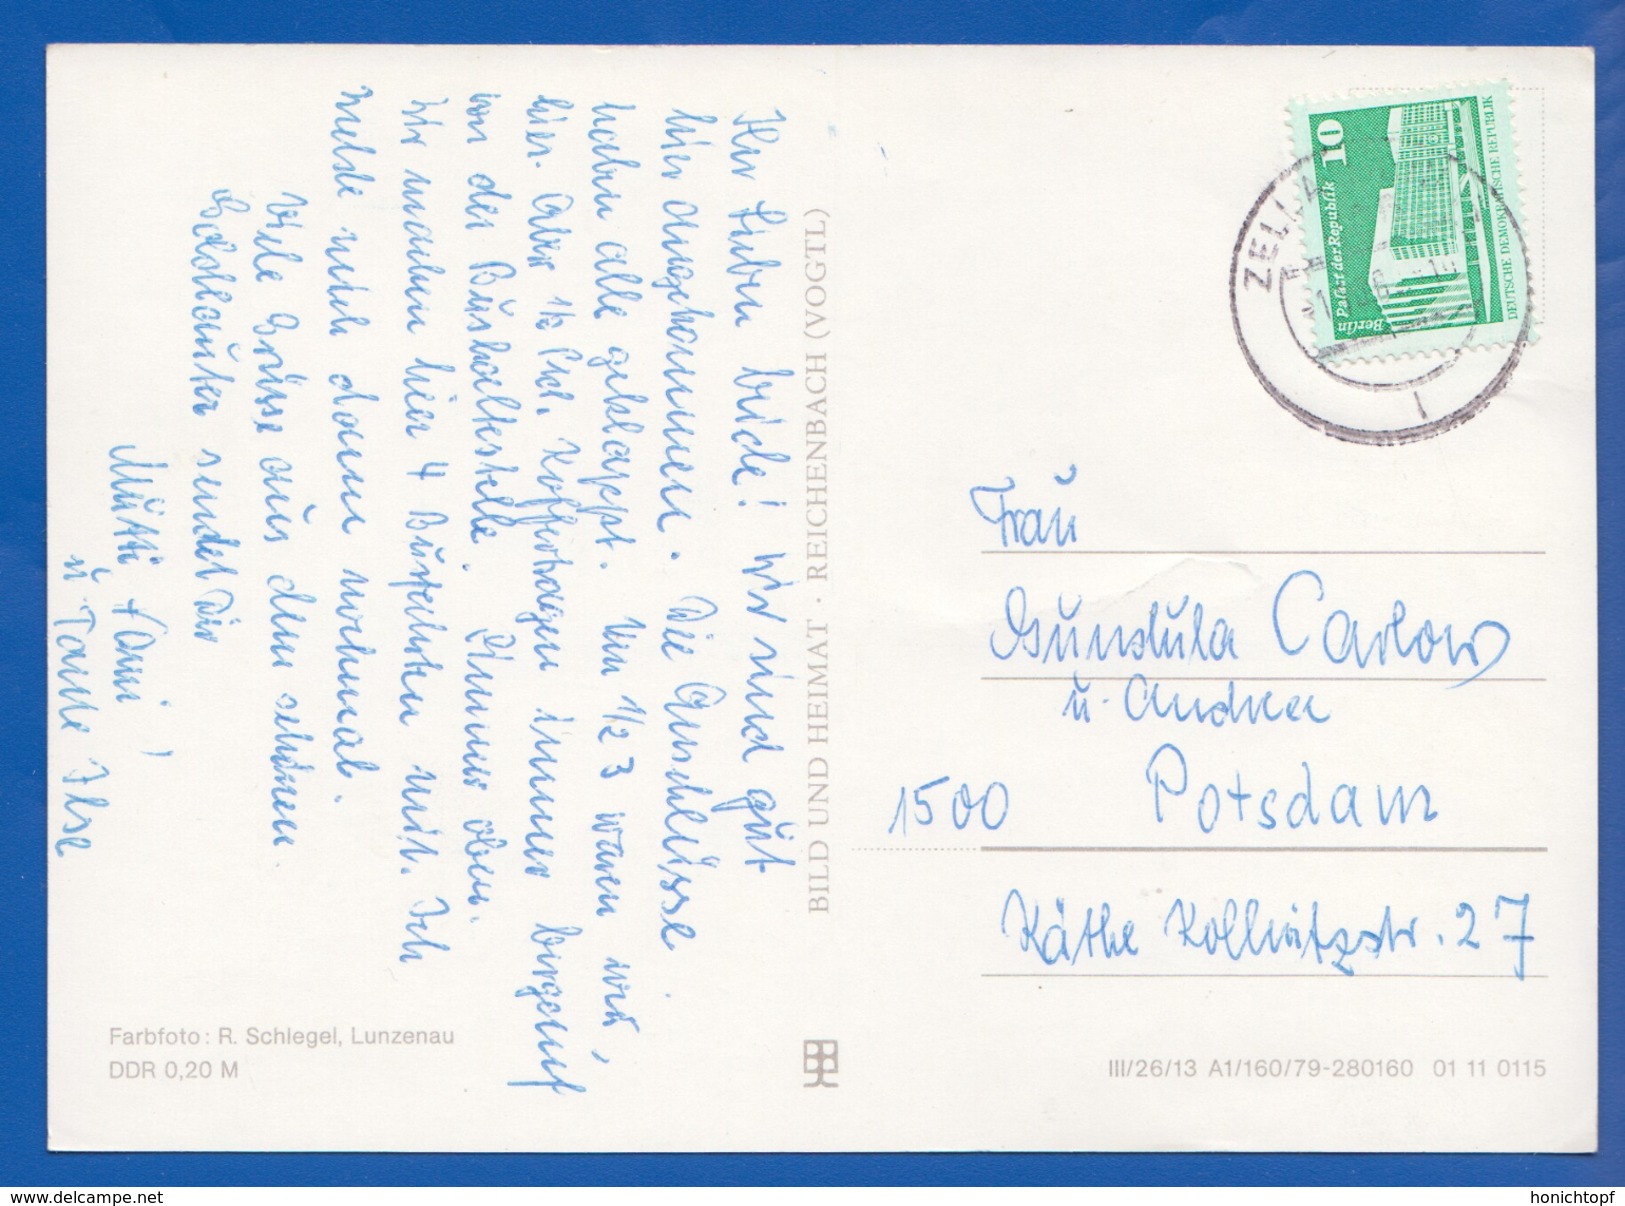 Ihr Lieben beide! Wir sind gut
hier angekommen. Die Anschlüsse
haben alle geklappt. Um 1/2 3 waren wir,
hier. Aber 1/2 Std. Koffertragen immer bergauf
von der Bushaltestelle. Immer oben.
Wir machen hier 4 Busfahrten mit. Ich
melde mich dann nochmal.
Viele Grüsse aus dem schönen
sendet Dir
Mutti + Omi!
u. Tante Ilse
BILD UND HEIMAT · REICHENBACH (VOGTL)
Farbfoto: R. Schlegel, Lunzenau
DDR 0,20 M
10
Palast der Republik
Berlin
DEUTSCHE DEMOKRATISCHE REPUBLIK
ZELLA
Frau
Gundula Carlow
u. Andrea
1500 Potsdam
Käthe Kollwitzstr. 27
III/26/13 A1/160/79-280160 01 11 0115
delcampe.net
honichtopf